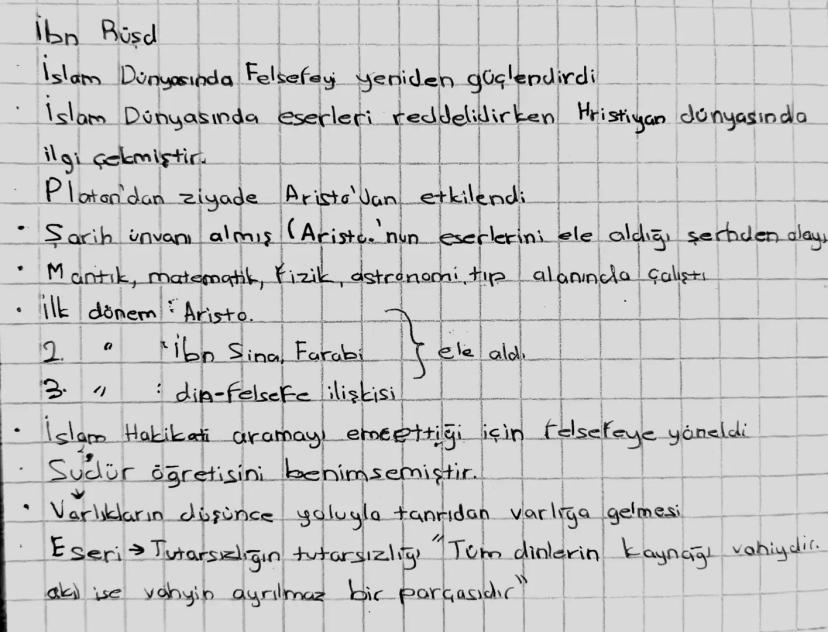 İbn Rüşd
İslam Dünyasında Felsefeyi yeniden güçlendirdi
· İslam Dünyasında eserleri reddelidirken Hristiyan dünyasında
ilgi çekmiştir.
Platon'dan ziyade Aristo'dan etkilendi
• Şarih ünvanı almış (Aristo.'nun eserlerini ele aldığı şerhden olayı
• Mantık, matematik, fizik, astronomi, tıp alanında çalıştı
• ilk dönem : Aristo.
2. " : ibn Sina, Farabi } ele aldı
3. " : din-felsefe ilişkisi
• İslam Hakikati aramayı emrettiği için felsefeye yöneldi
· Südür öğretisini benimsemiştir.
• Varlıkların düşünce yoluyla tanrıdan varlığa gelmesi
· Eseri → Tutarsızlığın tutarsızlığı "Tüm dinlerin kaynağı vahiydir.
akıl ise vahyin ayrılmaz bir parçasıdır"